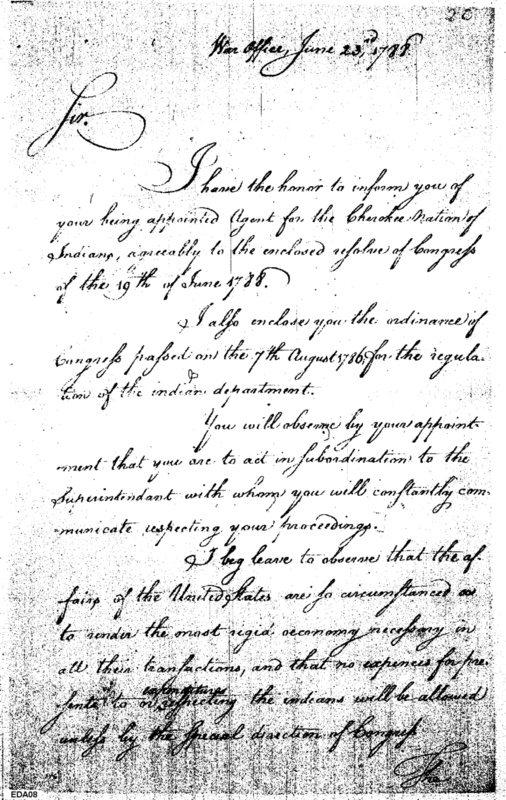 20
War Office, June 23rd, 1788
Sir.
I have the honor to inform you of
your being appointed Agent for the Cherokee Nation of
Indians, agreeably to the enclosed resolve of Congress
of the 19th of June 1788.
I also enclose you the ordinance of
Congress passed on the 7th August 1786, for the regula-
tion of the indian department.
You will observe by your appoint-
ment that you are to act in subordination to the
Superintendant with whom you will constantly com-
municate respecting your proceedings.
I beg leave to observe that the af-
fairs of the United States are so circumstanced as
to render the most rigid oeconomy necessary in
all their transactions, and that no expences for pre-
expenditures
sents to or respecting the indians will be allowed
unless by the special direction of Congress
The
EDA08